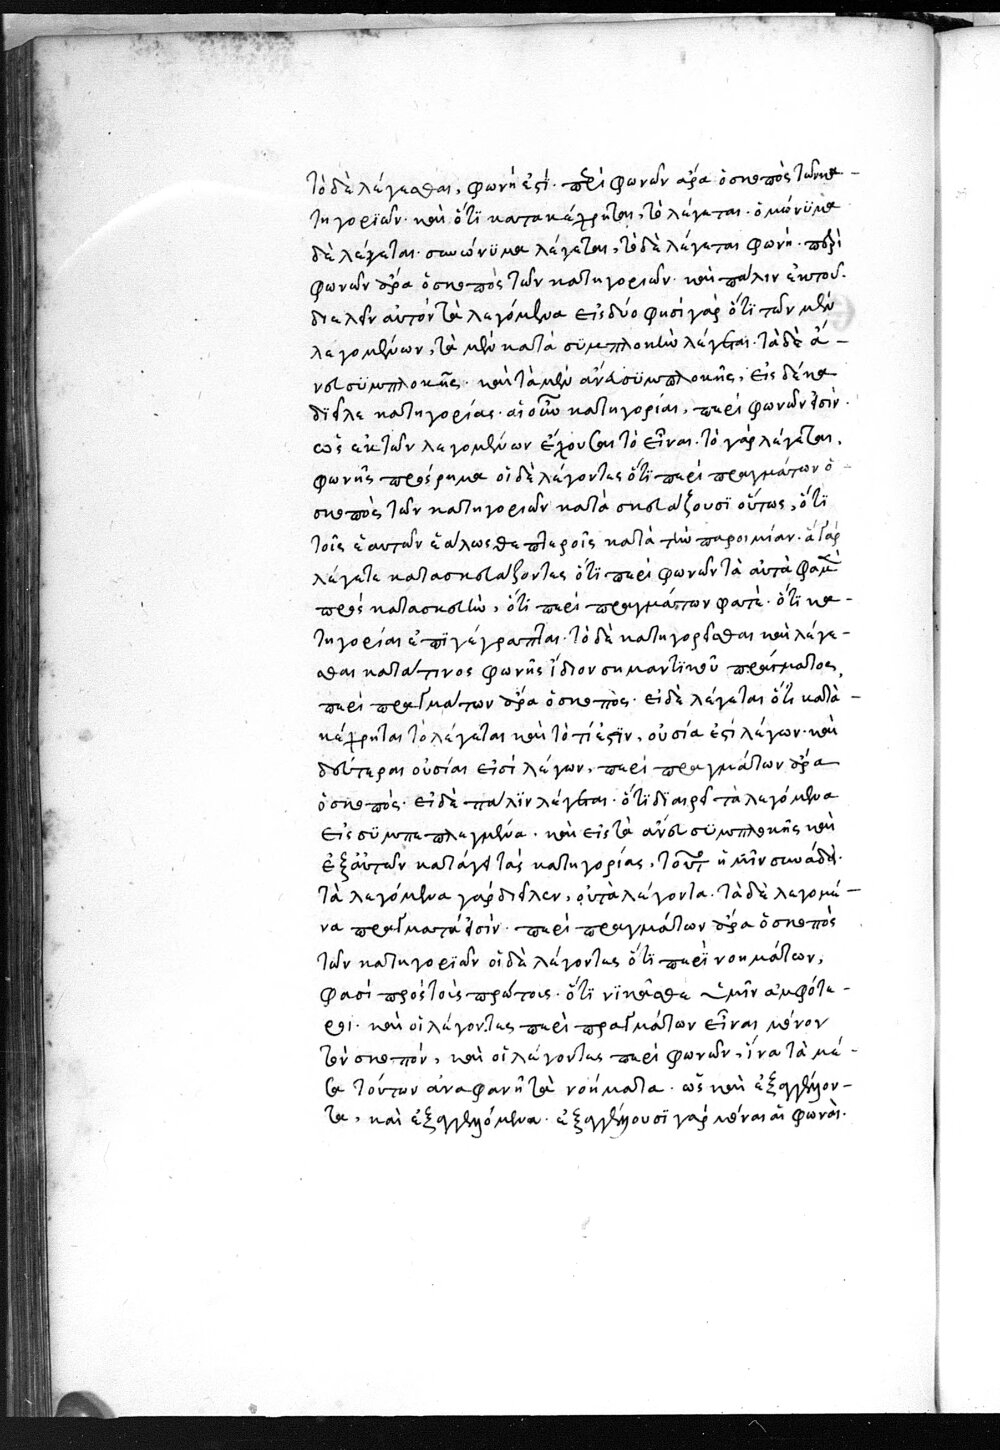 τὸ δὲ λέγεσθαι, φωνή ἐστι· περὶ φωνῶν ἄρα ὁ σκοπὸς τῶν κα-
τηγοριῶν· καὶ ὅτι κατακέχρηται, τὸ λέγεται· ὁμώνυμα
δὲ λέγεται· συνώνυμα λέγεται, τὸ δὲ λέγεται φωνή· περὶ
φωνῶν ἄρα ὁ σκοπὸς τῶν κατηγοριῶν· καὶ πάλιν ἐκ τοῦ
διελεῖν αὐτὸν τὰ λεγόμενα εἰς δύο φησὶ γὰρ ὅτι τῶν μὲν
λεγομένων, τὰ μὲν κατὰ συμπλοκὴν λέγεται· τὰ δὲ ἄ-
νευ συμπλοκῆς· καὶ τὰ μὲν ἄνευ συμπλοκῆς, εἰς δέκα
διεῖλε κατηγορίας· αἱ οὖν κατηγορίαι, περὶ φωνῶν εἰσὶν·
ὡς ἐκ τῶν λεγομένων ἔχουσαι τὸ εἶναι· τὸ γὰρ λέγεται,
φωνῆς πρόσρημα οἱ δὲ λέγοντες ὅτι περὶ πραγμάτων ὁ
σκοπὸς τῶν κατηγοριῶν κατασκευάζουσι οὕτως, ὅτι
τοῖς ἑαυτῶν ἑάλωσθε πτεροῖς κατὰ τὴν παροιμίαν· ἃ γὰρ
λέγετε κατασκευάζοντες ὅτι περὶ φωνῶν τὰ αὐτὰ φαμὲν
πρὸς κατασκευὴν, ὅτι περὶ πραγμάτων φατὲ· ὅτι κα-
τηγορίαι ἐπιγέγραπται· τὸ δὲ κατηγορεῖσθαι καὶ λέγε-
σθαι κατά τινος φωνῆς ἴδιον σημαντικοῦ πράγματος,
περὶ πραγμάτων ἄρα ὁ σκοπὸς· εἰ δὲ λέγεται ὅτι κατα-
κέχρηται τὸ λέγεται καὶ τὸ τί ἐστὶν, οὐσία ἐστὶ λέγων· καὶ
δεύτεραι οὐσίαι εἰσὶ λέγων, περὶ πραγμάτων ἄρα
ὁ σκοπὸς· εἰ δὲ πάλιν λέγεται· ὅτι διαιρεῖ τὰ λεγόμενα
εἰς συμπεπλεγμένα· καὶ εἰς τὰ ἄνευ συμπλοκῆς καὶ
ἐξ αὐτῶν κατάγει τὰς κατηγορίας, τοῦτο ἡμῖν συνάδει·
τὰ λεγόμενα γὰρ διεῖλεν, οὐ τὰ λέγοντα· τὰ δὲ λεγόμε-
να πράγματά εἰσὶν· περὶ πραγμάτων ἄρα ὁ σκοπὸς
τῶν κατηγοριῶν οἱ δὲ λέγοντες ὅτι περὶ νοημάτων,
φασὶ πρὸς τοὺς πρώτοις· ὅτι νικᾶσθε ἡμῖν ἀμφότε-
ροι· καὶ οἱ λέγοντες περὶ πραγμάτων εἶναι μόνον
τὸν σκοπόν, καὶ οἱ λέγοντες περὶ φωνῶν, ἵνα τὰ μέ-
σα τούτων ἀναφανῆ τὰ νοήματα· ὡς καὶ ἐξαγγέλλον-
τα, καὶ ἐξαγγελλόμενα· ἐξαγγέλλουσι γὰρ μόναι αἱ φωναὶ·